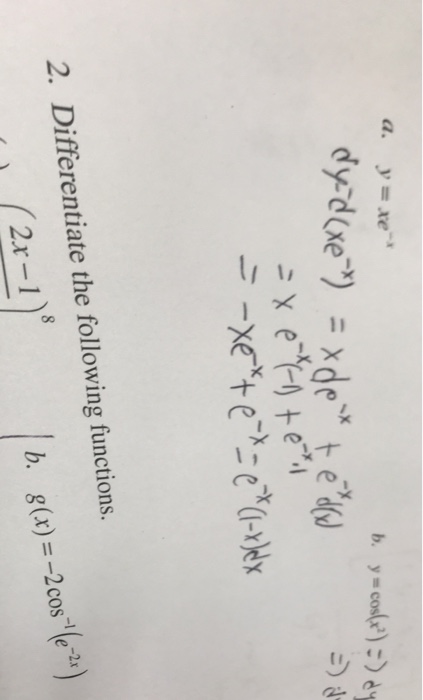 a. y = xe^{-x}
b. y = cos(x²) => dy
dy = d(xe^{-x}) = x de^{-x} + e^{-x} d(x)
=>
= x e^{-x}(-1) + e^{-x}·1
= -xe^{-x} + e^{-x} = e^{-x}(1-x)dx
2. Differentiate the following functions.
(2x-1)^8
b. g(x) = -2cos^{-1}(e^{-2x})